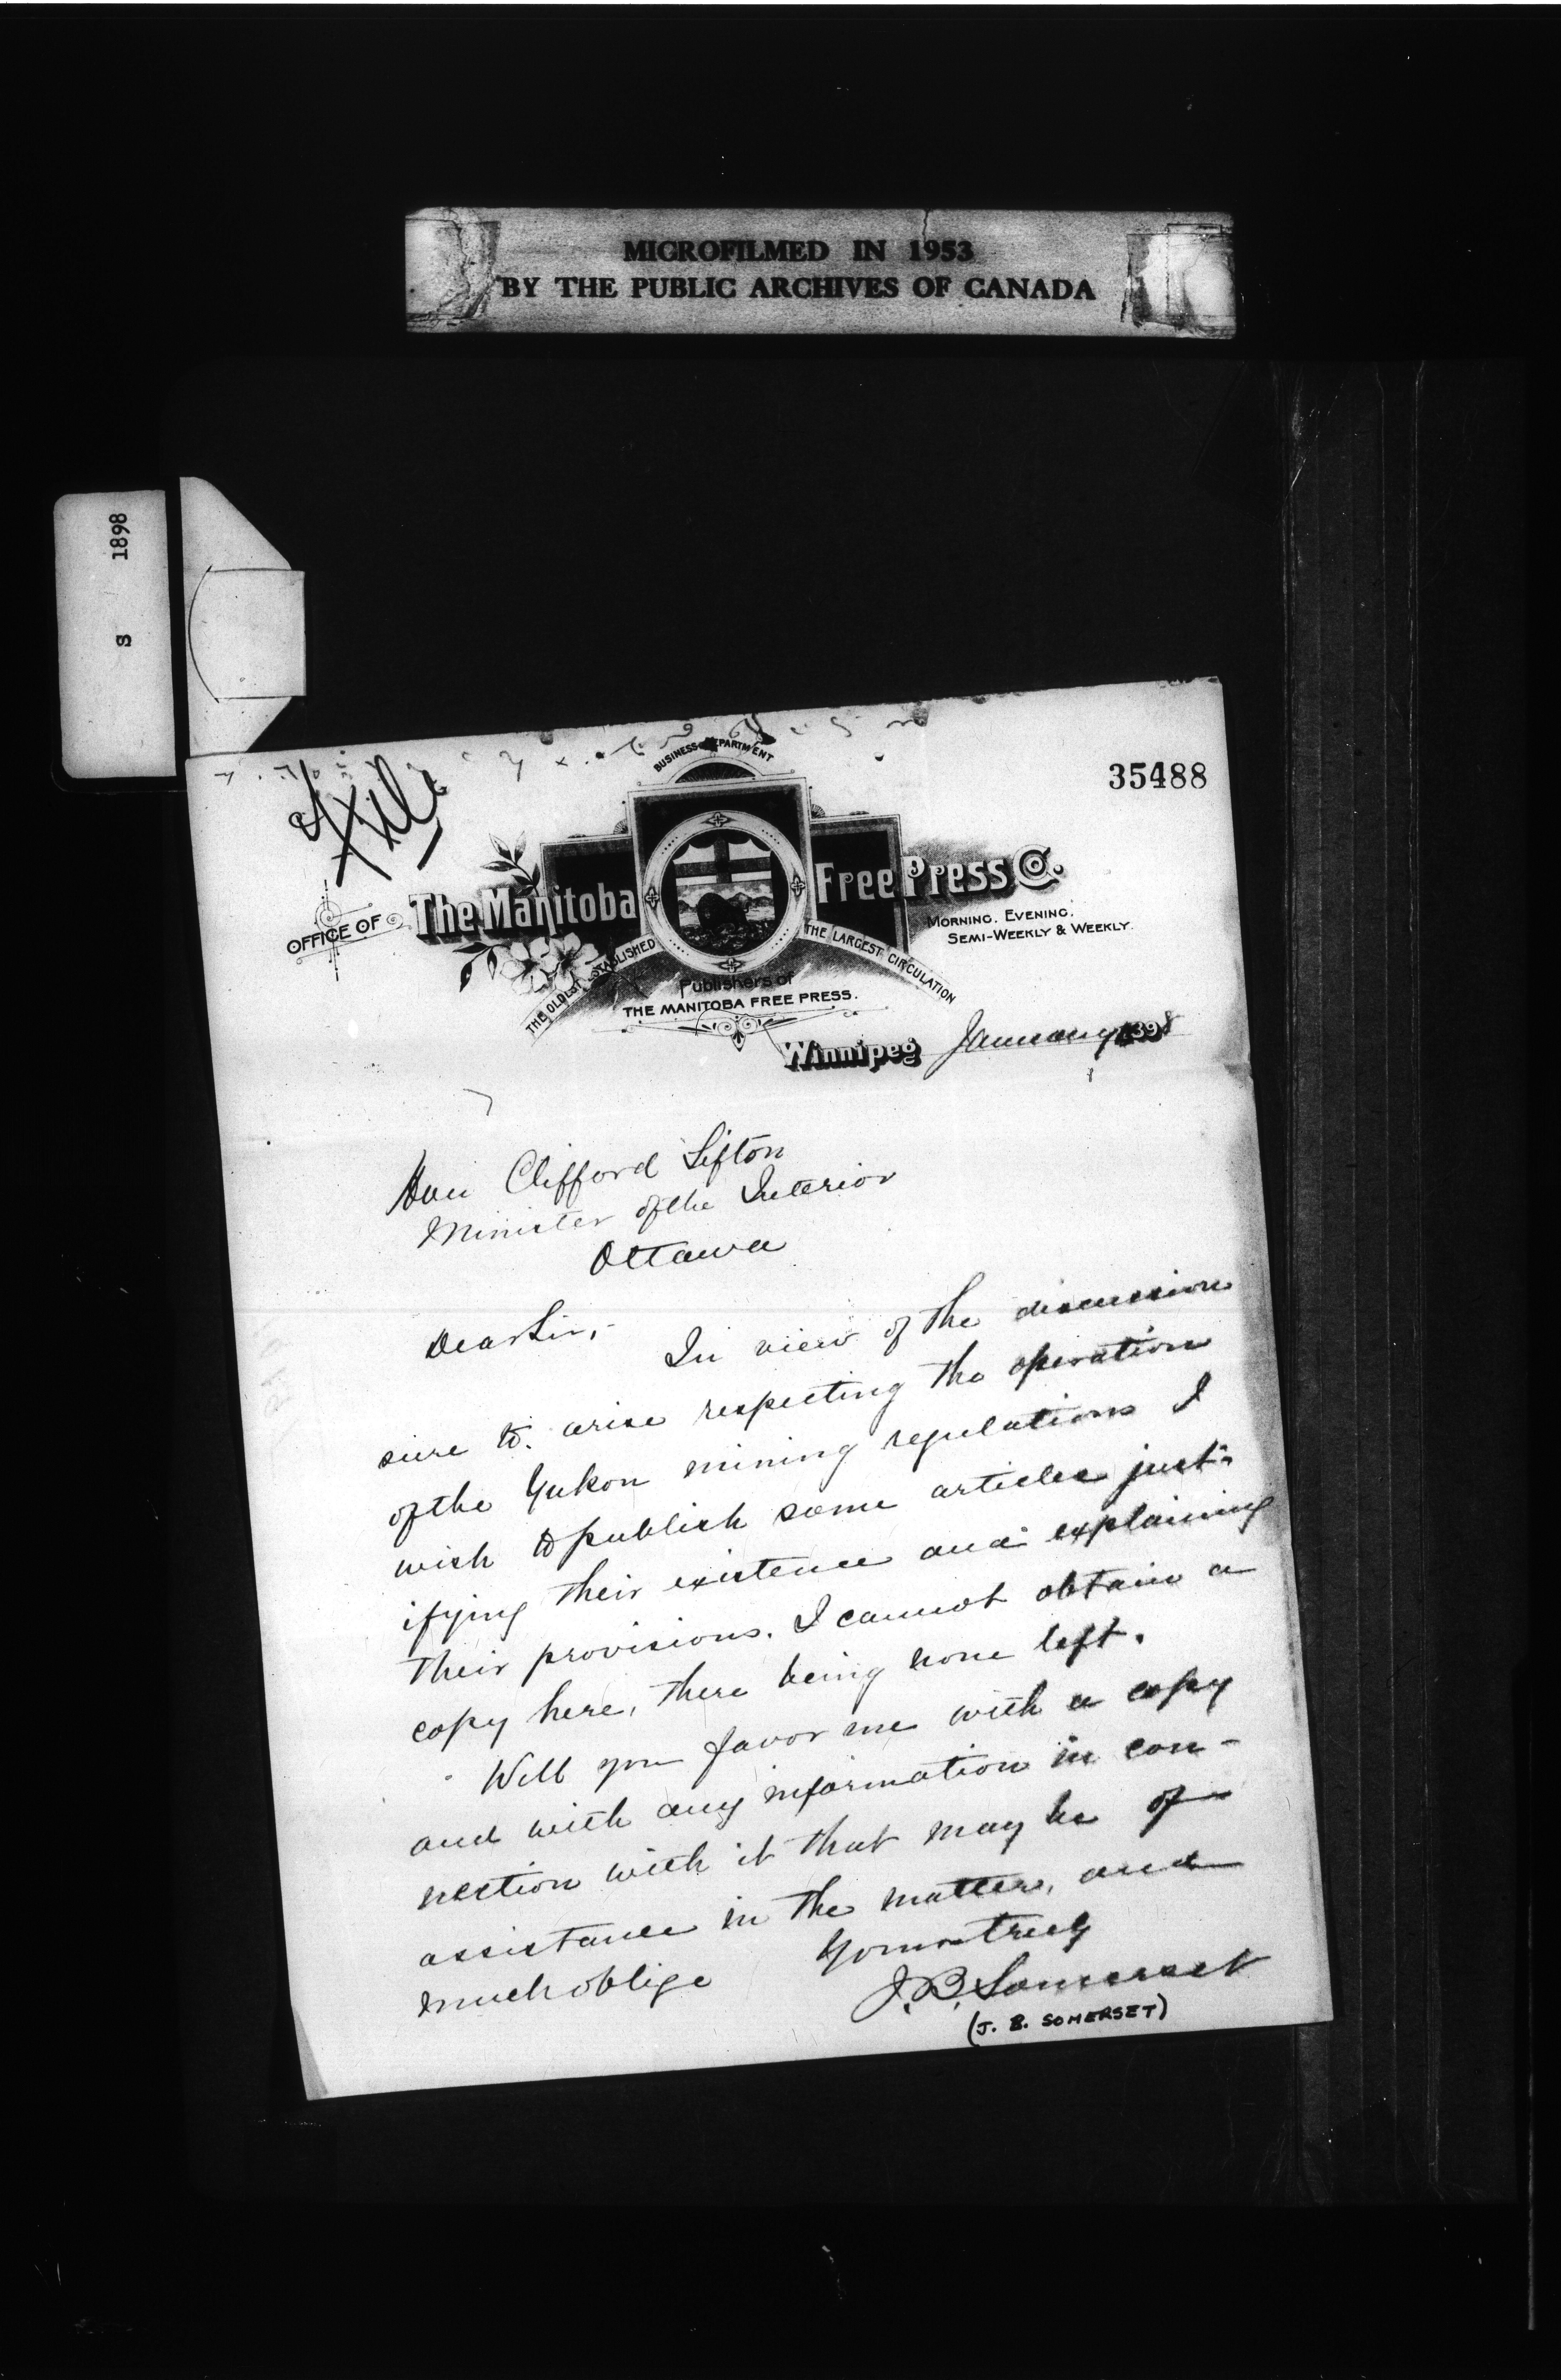 MICROFILMED IN 1953
BY THE PUBLIC ARCHIVES OF CANADA
S 1898
35488
File
BUSINESS DEPARTMENT
OFFICE OF The Manitoba Free Press Co.
MORNING. EVENING.
SEMI-WEEKLY & WEEKLY.
THE OLDEST ESTABLISHED
THE LARGEST CIRCULATION
Publishers of
THE MANITOBA FREE PRESS.
Winnipeg January 1898
Hon Clifford Sifton
Minister of the Interior
Ottawa
Dear Sir,-
In view of the discussion
sure to arise respecting the operation
of the Yukon mining regulations I
wish to publish some articles just-
ifying their existence and explaining
their provisions. I cannot obtain a
copy here, there being none left.
Will you favor me with a copy
and with any information in con-
nection with it that may be of
assistance in the matter, and
much oblige
Yours truly
J. B. Somerset
(J. B. SOMERSET)